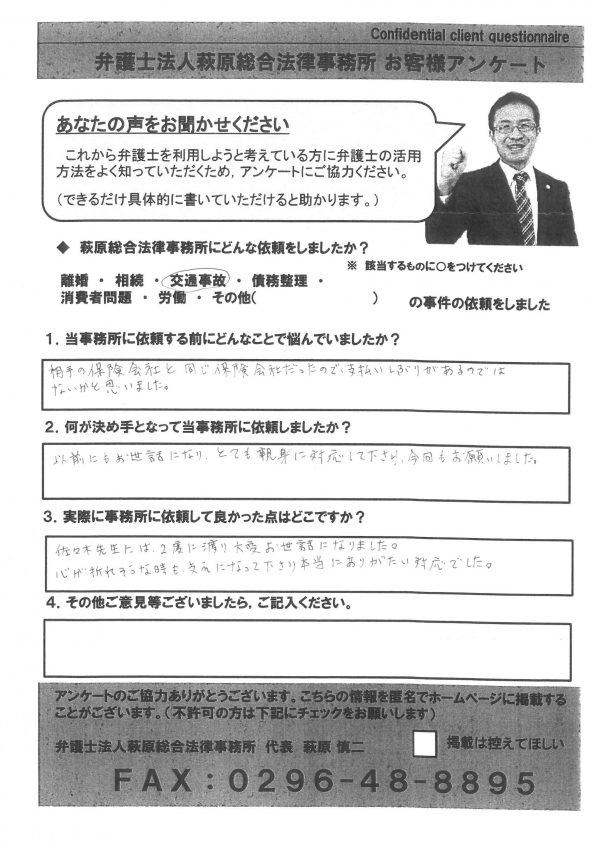 Confidential client questionnaire
弁護士法人萩原総合法律事務所 お客様アンケート
あなたの声をお聞かせください
これから弁護士を利用しようと考えている方に弁護士の活用
方法をよく知っていただくため，アンケートにご協力ください。
（できるだけ具体的に書いていただけると助かります。）
◆ 萩原総合法律事務所にどんな依頼をしましたか？
※ 該当するものに○をつけてください
離婚 ・ 相続 ・ 交通事故 ・ 債務整理 ・
消費者問題 ・ 労働 ・ その他（ ） の事件の依頼をしました
１．当事務所に依頼する前にどんなことで悩んでいましたか？
相手の保険会社と同じ保険会社だったので、支払いしぶりがあるのでは
ないかと思いました。
２．何が決め手となって当事務所に依頼しましたか？
以前にもお世話になり、とても親身に対応して下さり、今回もお願いしました。
３．実際に事務所に依頼して良かった点はどこですか？
佐々木先生には、2度に渡り大変お世話になりました。
心が折れそうな時も、支えになって下さり本当にありがたい対応でした。
４．その他ご意見等ございましたら，ご記入ください。
アンケートのご協力ありがとうございます。こちらの情報を匿名でホームページに掲載する
ことがございます。（不許可の方は下記にチェックをお願いします）
弁護士法人萩原総合法律事務所 代表 萩原 慎二
掲載は控えてほしい
FAX：0296-48-8895